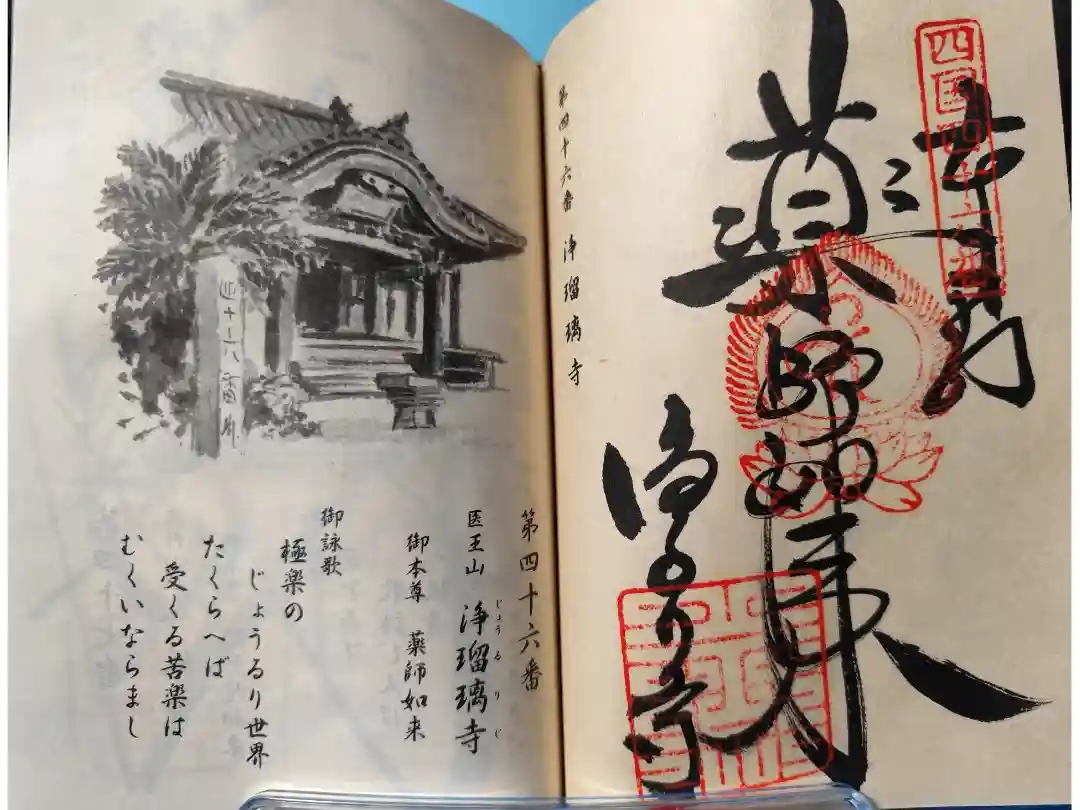 四国四十六番
奉納
薬師如来
浄るり寺
第四十六番 浄瑠璃寺
第四十六番
じょうるりじ
医王山 浄瑠璃寺
御本尊 薬師如来
御詠歌
極楽の
じょうるり世界
たくらへば
受くる苦楽は
むくいならまし